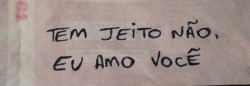 TEM JEITO NÃO,
EU AMO VOCÊ